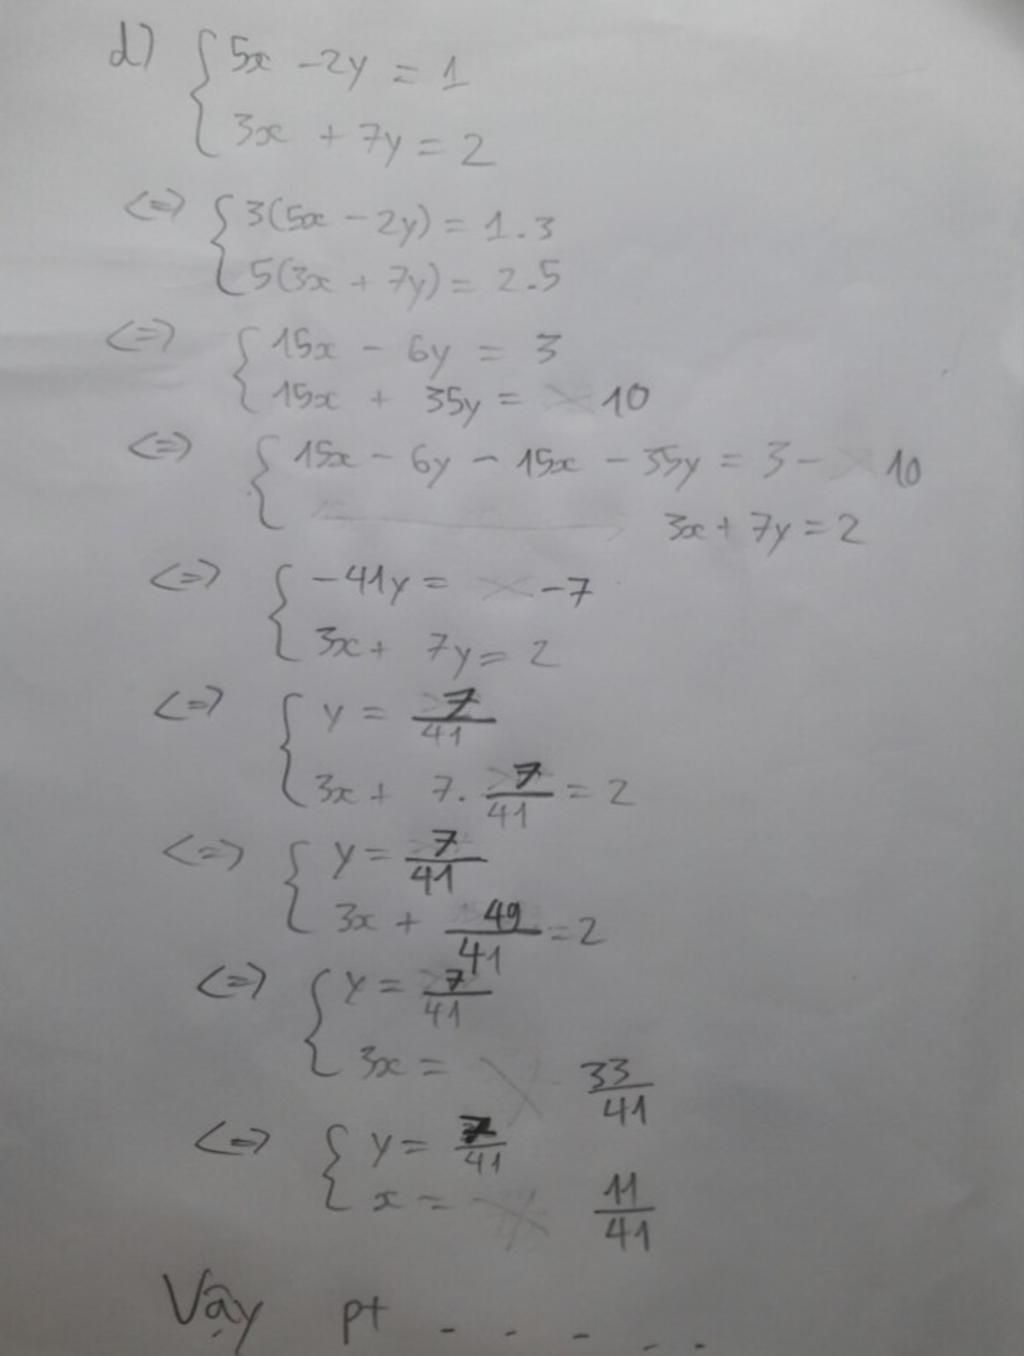 d) { 5x - 2y = 1
3x + 7y = 2
<=> { 3(5x - 2y) = 1.3
5(3x + 7y) = 2.5
<=> { 15x - 6y = 3
15x + 35y = 10
<=> { 15x - 6y - 15x - 35y = 3 - 10
3x + 7y = 2
<=> { -41y = -7
3x + 7y = 2
<=> { y = 7/41
3x + 7. 7/41 = 2
<=> { y = 7/41
3x + 49/41 = 2
<=> { y = 7/41
3x = 33/41
<=> { y = 7/41
x = 11/41
Vậy pt - - - - -